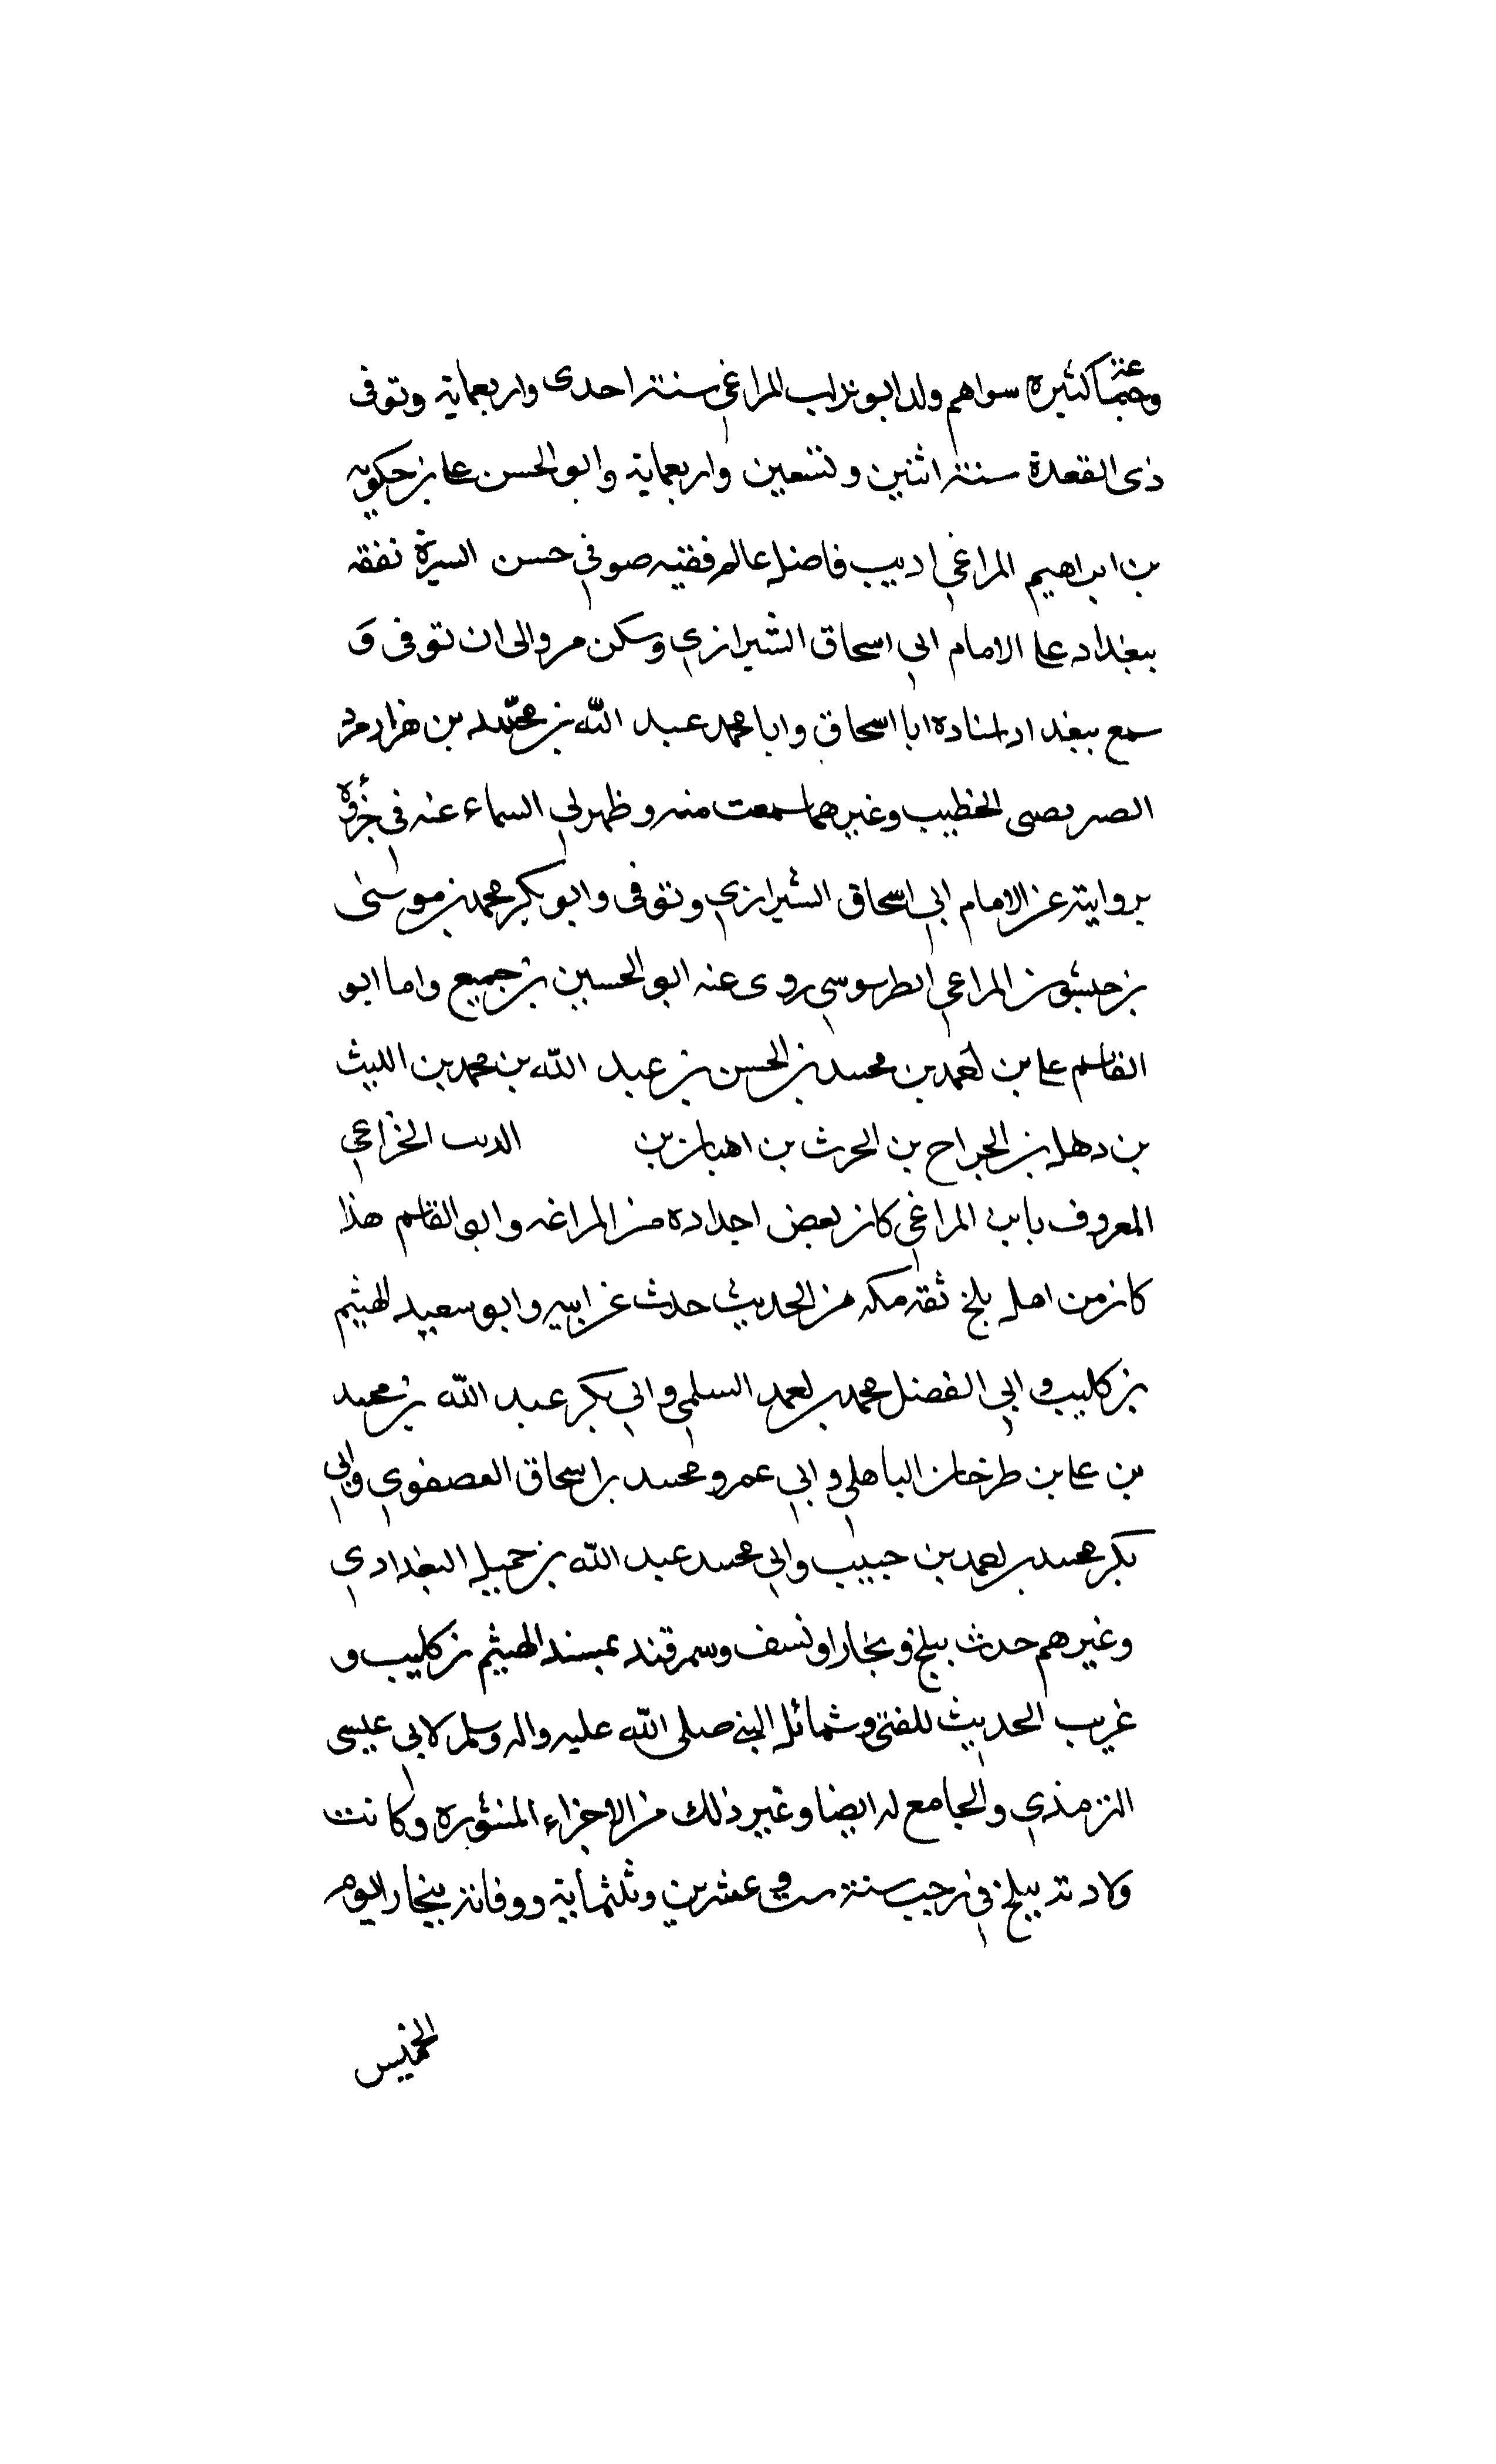 كثيرة سواهم ولد ابو تراب المراغي سنة احدى واربعماية وتوفى
ذى القعدة سنة اثنين وتسعين واربعماية وابو الحسن على بن حكويه
بن ابراهيم المراغي اديب فاضل عالم فقيه صوفي حسن السيرة تفقه
ببغداد على الامام ابي اسحاق الشيرازي وسكن مرو الى ان توفى و
سمع ببغداد استاده ابا اسحاق وابا محمد عبد الله بن محمد بن هزارمرد
الصريفى الخطيب وغيرهما سمعت منه وظهر لي السماع عنه في جزؤه
بروايته عن الامام ابي اسحاق الشيرازي وتوفى وابو بكر محمد بن موسى
بن حبشون المراغي الطرسوسي روى عنه ابو الحسين بن جميع واما ابو
القاسم على بن احمد بن محمد بن الحسن بن عبد الله بن محمد بن الليث
بن دهل بن الجراح بن الحرث بن اهبان بن الديب الخزاعي
المعروف بابن المراغي كان بعض اجداده من المراغه وابو القاسم هذا
كان من اهل بلخ ثقه مكه من الحديث حدث عن ابيه وابو سعيد الهيثم
بن كليب و ابي الفضل محمد بن احمد السلمي وابي بكر عبد الله بن محمد
بن على بن طرخان الباهلي و ابي عمرو محمد بن اسحاق العصفوي وابي
بكر محمد بن احمد بن حبيب وابي محمد عبد الله بن حميل البغدادي
وغيرهم حدث ببلخ و بخارا ونسف وسمرقند بمسند الهيثم بن كليب و
غريب الحديث للقتى وشمائل النبي صلى الله عليه واله وسلم لابي عيسى
الترمذي والجامع له ايضا وغير ذلك من الاجزاء المنثوره وكانت
ولادته ببلخ في رجب سنة ست وعشرين وثلثماية ووفاته ببخارا يوم
الخميس